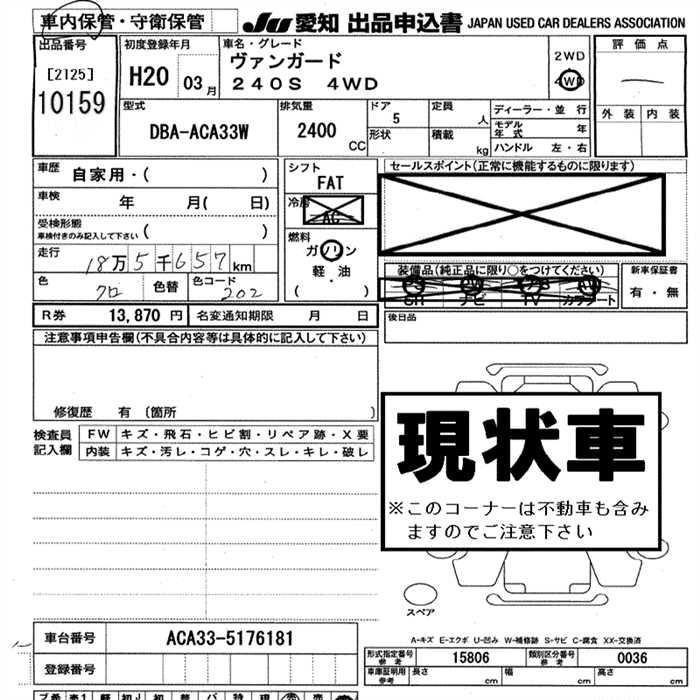 車内保管・守衛保管
JU 愛知 出品申込書 JAPAN USED CAR DEALERS ASSOCIATION
出品番号
[2125]
10159
初度登録年月
H20 03月
車名・グレード
ヴァンガード
240S 4WD
2WD
4WD
評価点
外装 内装
型式
DBA-ACA33W
排気量
2400 CC
ドア
5
形状
定員
人
積載
kg
ディーラー・並行
モデル年式 年
ハンドル 左・右
車歴 自家用・( )
車検 年 月( 日)
受検形態
車検付きのみ記入して下さい ( )
走行
18万5千657km
色 クロ 色替 色コード 202
シフト
FAT
冷房
AC
燃料
ガソリン
軽・油
( ・ )
セールスポイント(正常に機能するものに限ります)
装備品(純正品に限り○をつけてください)
ナビ TV
新車保証書
有・無
R券 13,870円 名変通知期限 月 日
後日品
注意事項申告欄(不具合内容等は具体的に記入して下さい)
修復歴 有〔箇所 〕
検査員記入欄
FW キズ・飛石・ヒビ割・リペア跡・X要
内装 キズ・汚レ・コゲ・穴・スレ・キレ・破レ
現状車
※このコーナーは不動車も含み
ますのでご注意下さい
スペア
A-キズ E-エクボ U-凹み W-補修跡 S-サビ C-腐食 XX-交換済
車台番号 ACA33-5176181
登録番号
形式指定番号 参考 15806 類別区分番号 参考 0036
車庫証明用 参考 長さ cm 幅 cm 高さ cm